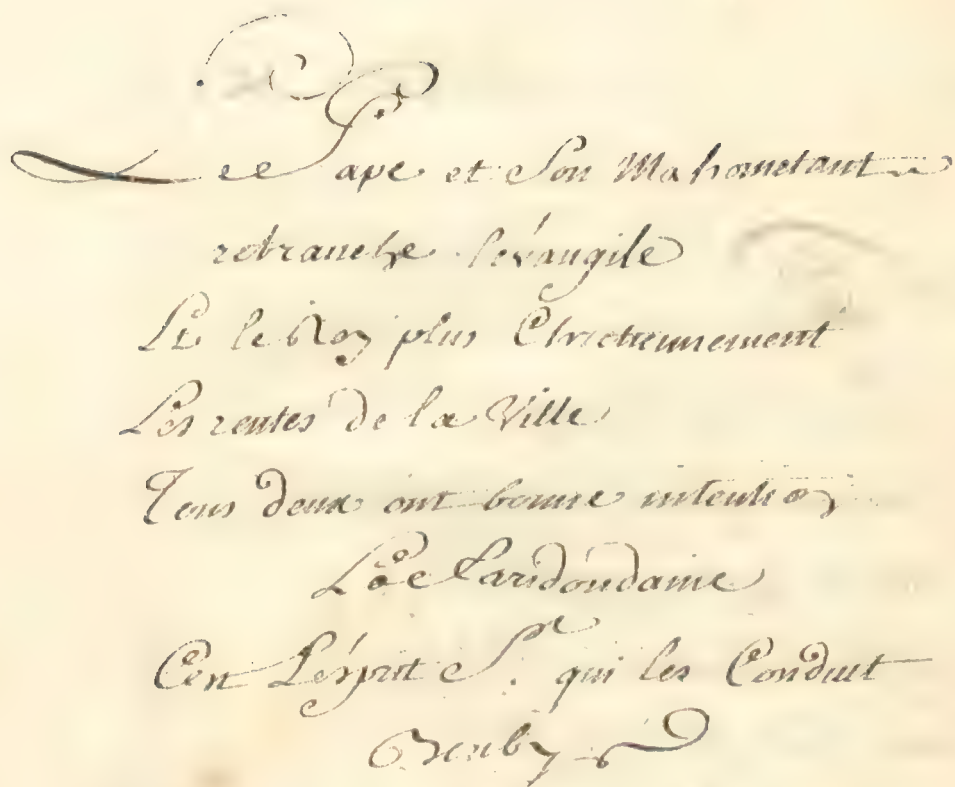 Le Pape et Son Mahometant
retranche l'évangile
Et le Roy plus Chretiennement
Les rentes de la Ville
Tous deux ont bonne intention
La faridondaine
C'est L'esprit St. qui les Conduit